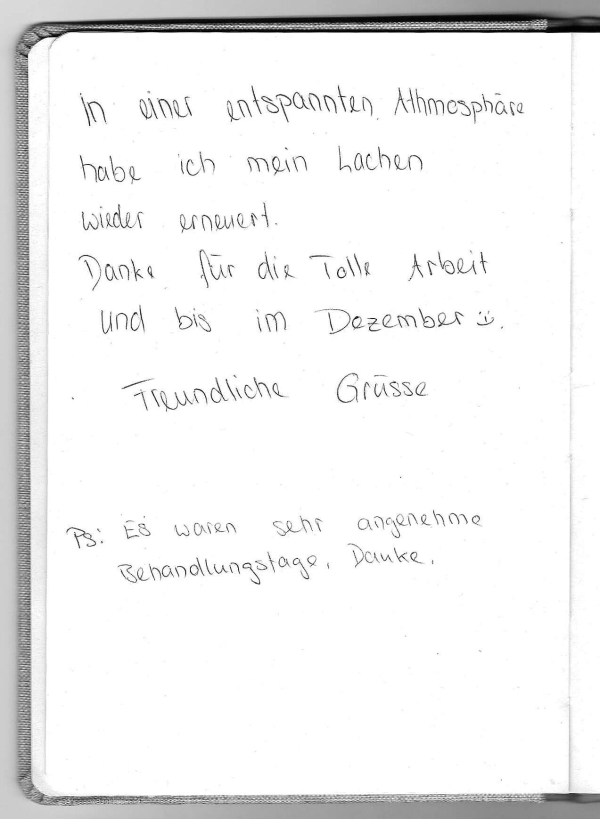 In einer entspannten Athmosphäre
habe ich mein Lachen
wieder erneuert.
Danke für die Tolle Arbeit
und bis im Dezember :).
Freundliche Grüsse
Ps: Es waren sehr angenehme
Behandlungstage, Danke.